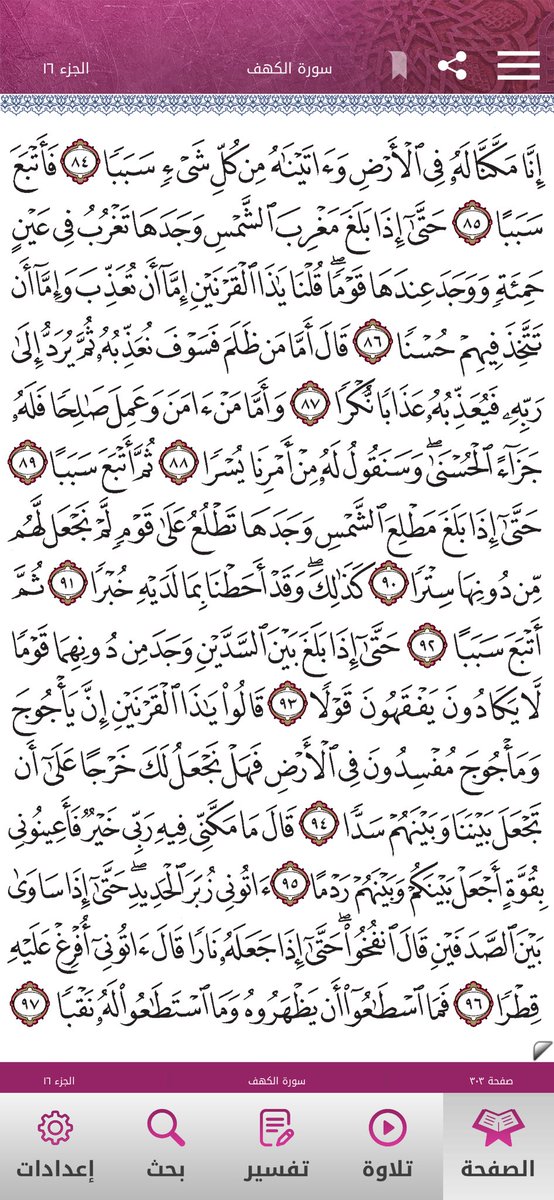 الجزء ١٦ سورة الكهف
إِنَّا مَكَّنَّا لَهُۥ فِى ٱلْأَرْضِ وَءَاتَيْنَٰهُ مِن كُلِّ شَىْءٍ سَبَبًا ٨٤ فَأَتْبَعَ
سَبَبًا ٨٥ حَتَّىٰٓ إِذَا بَلَغَ مَغْرِبَ ٱلشَّمْسِ وَجَدَهَا تَغْرُبُ فِى عَيْنٍ
حَمِئَةٍ وَوَجَدَ عِندَهَا قَوْمًا ۗ قُلْنَا يَٰذَا ٱلْقَرْنَيْنِ إِمَّآ أَن تُعَذِّبَ وَإِمَّآ أَن
تَتَّخِذَ فِيهِمْ حُسْنًا ٨٦ قَالَ أَمَّا مَن ظَلَمَ فَسَوْفَ نُعَذِّبُهُۥ ثُمَّ يُرَدُّ إِلَىٰ
رَبِّهِۦ فَيُعَذِّبُهُۥ عَذَابًا نُّكْرًا ٨٧ وَأَمَّا مَنْ ءَامَنَ وَعَمِلَ صَٰلِحًا فَلَهُۥ
جَزَآءً ٱلْحُسْنَىٰ ۖ وَسَنَقُولُ لَهُۥ مِنْ أَمْرِنَا يُسْرًا ٨٨ ثُمَّ أَتْبَعَ سَبَبًا ٨٩
حَتَّىٰٓ إِذَا بَلَغَ مَطْلِعَ ٱلشَّمْسِ وَجَدَهَا تَطْلُعُ عَلَىٰ قَوْمٍ لَّمْ نَجْعَل لَّهُم
مِّن دُونِهَا سِتْرًا ٩٠ كَذَٰلِكَ ۖ وَقَدْ أَحَطْنَا بِمَا لَدَيْهِ خُبْرًا ٩١ ثُمَّ
أَتْبَعَ سَبَبًا ٩٢ حَتَّىٰٓ إِذَا بَلَغَ بَيْنَ ٱلسَّدَّيْنِ وَجَدَ مِن دُونِهِمَا قَوْمًا
لَّا يَكَادُونَ يَفْقَهُونَ قَوْلًا ٩٣ قَالُوا۟ يَٰذَا ٱلْقَرْنَيْنِ إِنَّ يَأْجُوجَ
وَمَأْجُوجَ مُفْسِدُونَ فِى ٱلْأَرْضِ فَهَلْ نَجْعَلُ لَكَ خَرْجًا عَلَىٰٓ أَن
تَجْعَلَ بَيْنَنَا وَبَيْنَهُمْ سَدًّا ٩٤ قَالَ مَا مَكَّنِّى فِيهِ رَبِّى خَيْرٌ فَأَعِينُونِى
بِقُوَّةٍ أَجْعَلْ بَيْنَكُمْ وَبَيْنَهُمْ رَدْمًا ٩٥ ءَاتُونِى زُبَرَ ٱلْحَدِيدِ ۖ حَتَّىٰٓ إِذَا سَاوَىٰ
بَيْنَ ٱلصَّدَفَيْنِ قَالَ ٱنفُخُوا۟ ۖ حَتَّىٰٓ إِذَا جَعَلَهُۥ نَارًا قَالَ ءَاتُونِىٓ أُفْرِغْ عَلَيْهِ
قِطْرًا ٩٦ فَمَا ٱسْطَٰعُوٓا۟ أَن يَظْهَرُوهُ وَمَا ٱسْتَطَٰعُوا۟ لَهُۥ نَقْبًا ٩٧
صفحة ٣٠٣ سورة الكهف الجزء ١٦
الصفحة تلاوة تفسير بحث إعدادات